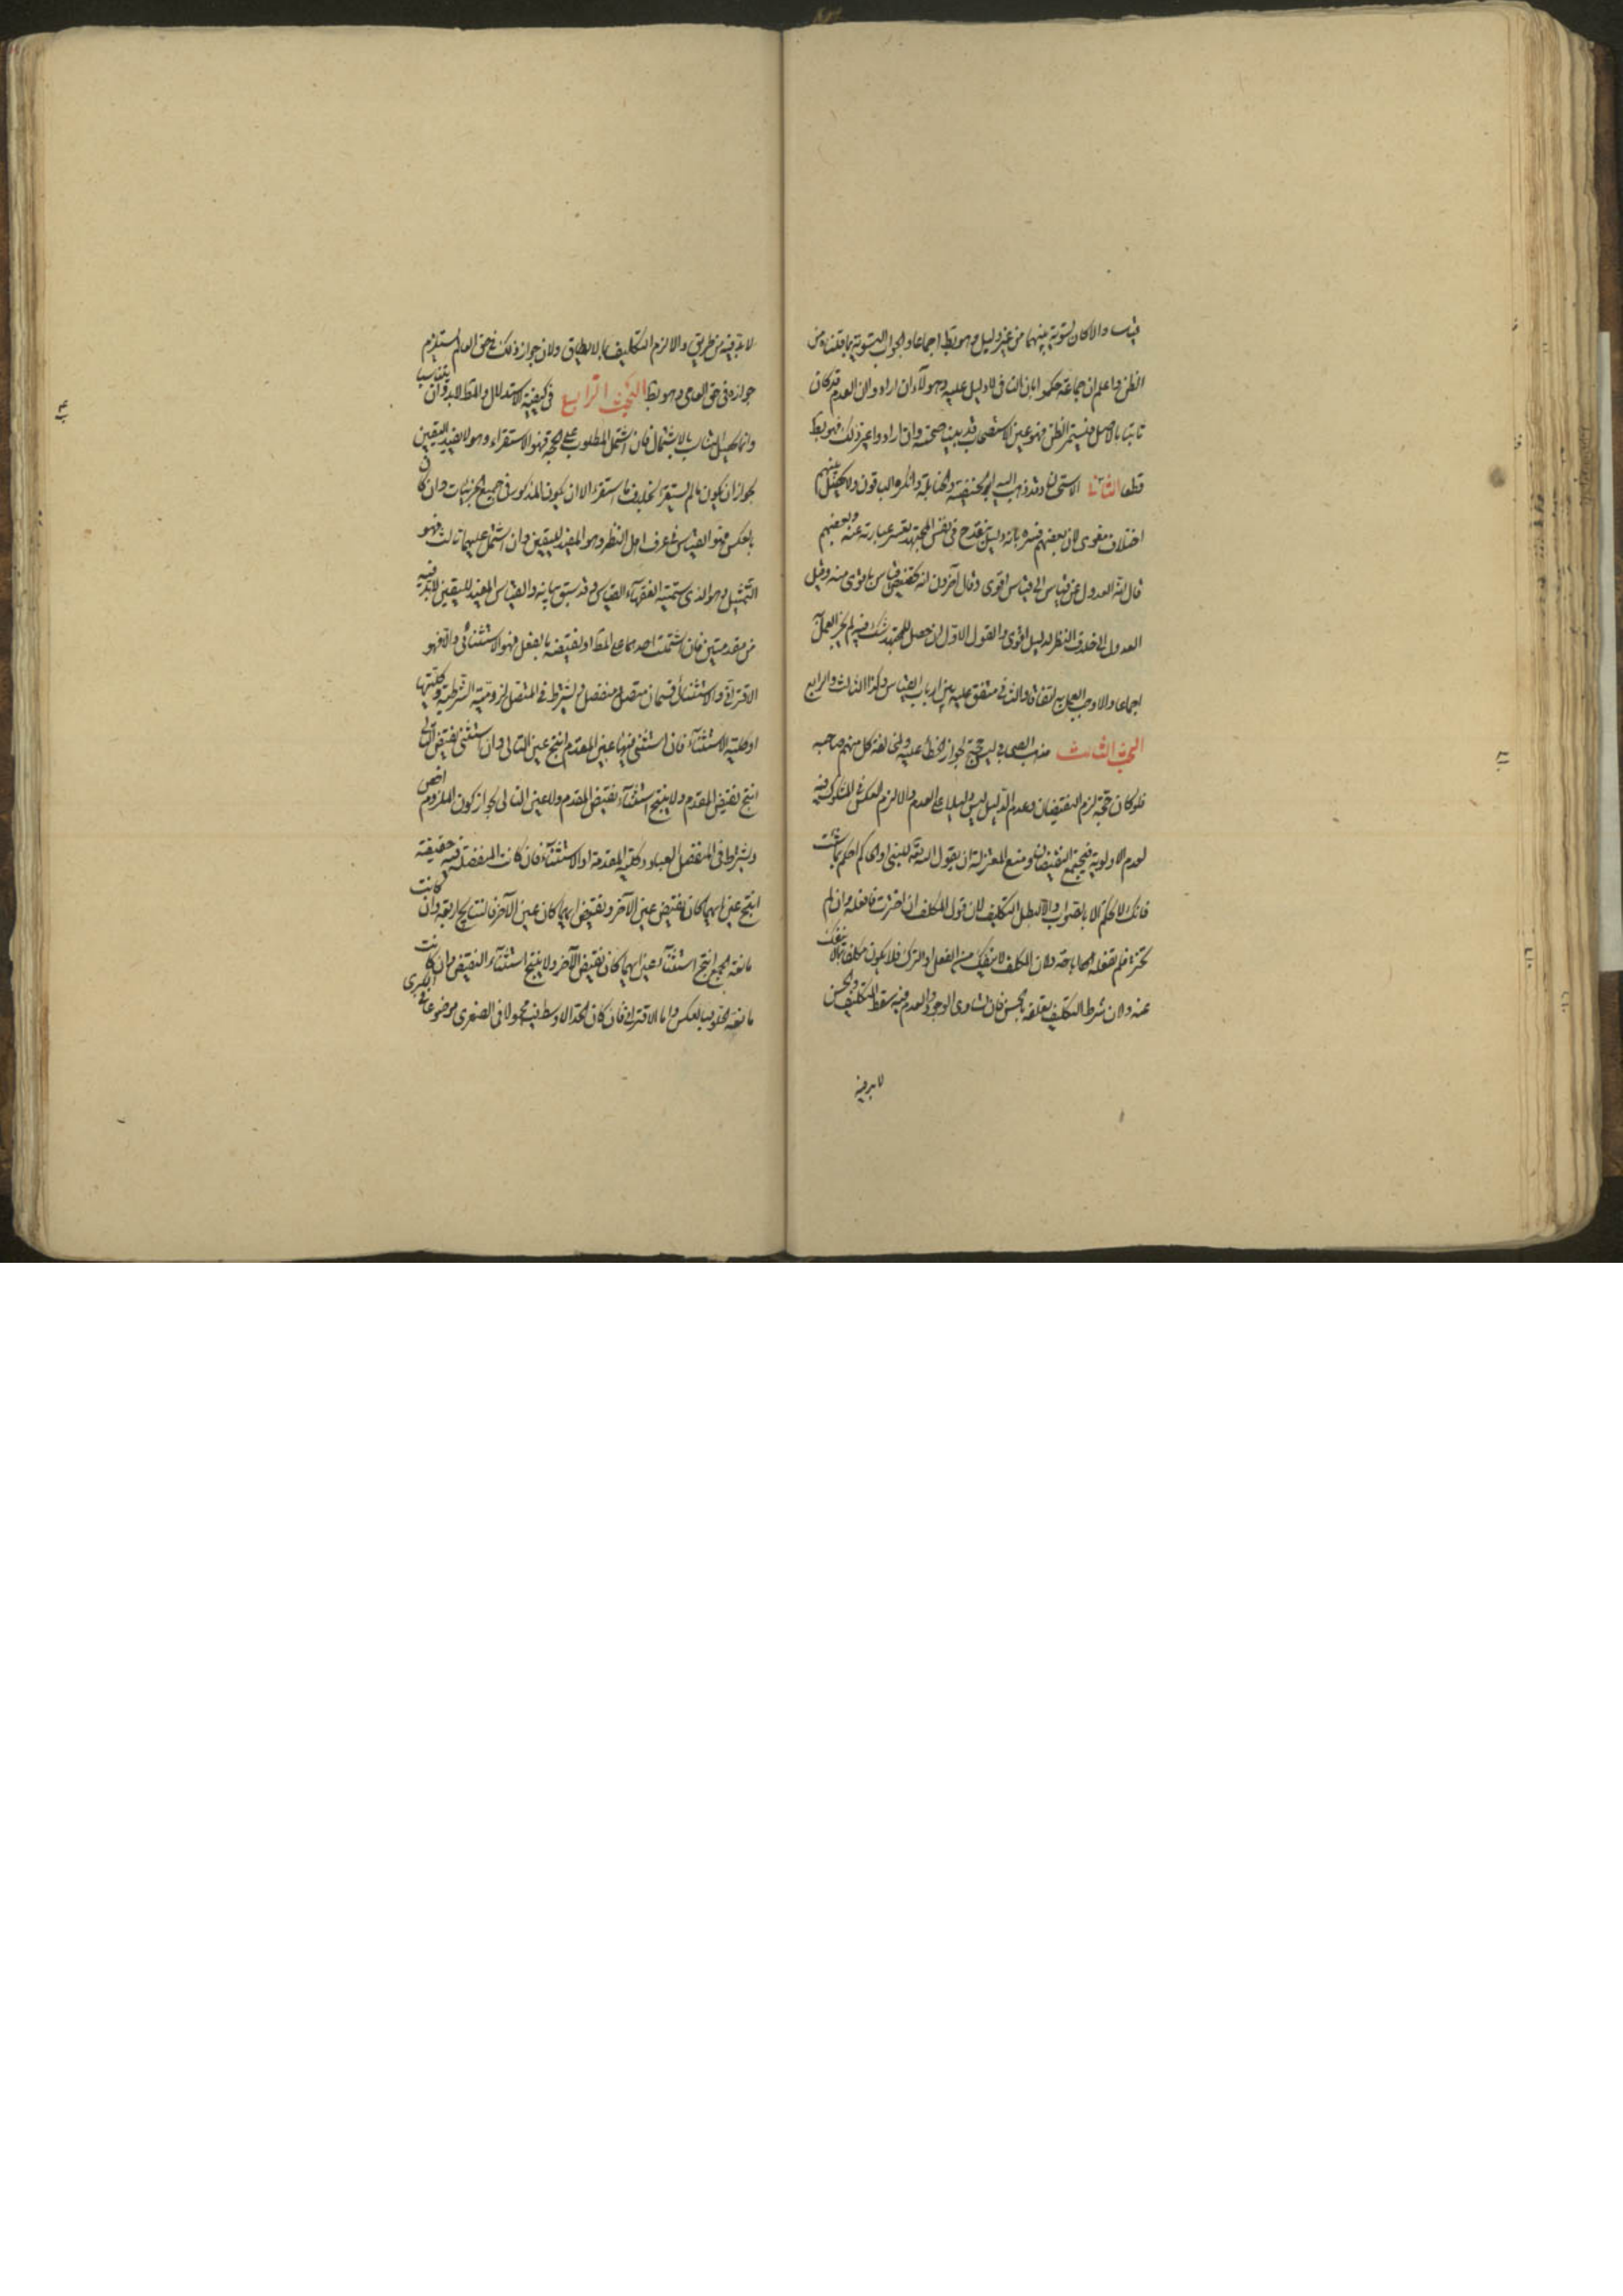 قياسا والا كان تسوية بينهما من غير دليل وهو بط اجماعا والجواب التسوية بما قلناه من
الظن واعلم ان جماعة حكموا بان النافى لا دليل عليه وهولاء ان ارادوا ان العدم قد كان
ثابتا بالاصل فيستمر الظن فهو عين الاستصحاب وقد بينا صحته وان ارادوا غير ذلك فهو بط
قطعا الثانى الاستحسان وقد ذهب اليه ابو حنيفة والحنابلة وانكره الباقون ولا يحصل بينهم
اختلاف معنوى لان بعضهم فسره بانه دليل ينقدح فى نفس المجتهد يعسر عبارته عنه وبعضهم
قال انه العدول عن قياس الى قياس اقوى وقال آخرون انه تخصيص قياس باقوى منه وقيل
العدول الى خلاف النظر لدليل اقوى والقول الاول ان حصل للمجتهد شك فيه لم يجز العمل
اجماعا والا وجب العمل به اتفاقا والثانى متفق عليه بين ارباب القياس وكذا الثالث والرابع
البحث الثالث مذهب الصحابى ليس حجة لجواز الخطا عليه ولمخالفة كل منهم صاحبه
فلو كان حجة لزم النقيضان وعدم الدليل ليس دليلا على العدم والا لزم العكس للشكوك فيه
لعدم الاولوية فيجتمع النقيضان ومنع المعتزلة ان يقول الله تعالى للنبى او الحاكم احكم بما شئت
فانك لا تحكم الا بالصواب والا لبطل التكليف لان قول المكلف ان اخترت فافعله وان لم
تختره فلم تفعله اباحة ولان المكلف لا ينفك من الفعل او الترك فلا يكون مكلفا بما لا ينفك
عنه ولان شرط التكليف تعلقه بالحسن فان تساوى الوجود والعدم فيه سقط التكليف والحسن
لا بد فيه
لا بد فيه من طريق والا لزم التكليف بما لا يطاق ولان جواز ذلك فى حق العالم يستلزم
جوازه فى حق العامى وهو بط البحث الرابع فى كيفية الاستدلال والمط لا بد وان يتناسبا
وانما يحصل التناسب بالاشتمال فان اشتمل المطلوب على الحجة فهو الاستقراء وهو لا يفيد اليقين
لجواز ان يكون ما لم يستقرا بخلاف ما استقرا الا ان يكون المذكور فى جميع الجزئيات وان كان
بالعكس فهو القياس فى عرف اهل النظر وهو المفيد لليقين وان اشتمل عليهما ثالث فهو
التمثيل وهو الذى يسميه الفقهاء القياس وقد سبق بيانه والقياس المفيد لليقين لا بد فيه
من مقدمتين فان اشتملت احداهما على المط او نقيضه بالفعل فهو الاستثنائى والا فهو
الاقترانى والاستثنائى قسمان متصل ومنفصل ويشترط فى المتصل لزومية الشرطية وكليتها
او كلية الاستثناء فان استثنى فيها عين المقدم انتج عين التالى وان استثنى نقيض التالى
انتج نقيض المقدم ولا ينتج استثناء نقيض المقدم ولا عين التالى لجواز كون الملزوم اخص
ويشترط فى المنفصل العناد وكلية المقدمة او الاستثناء فان كانت المنفصلة فيه حقيقية
انتج عين ايهما كان نقيض عين الآخر ونقيض ايهما كان عين الآخر فالنتايج اربعة وان كانت
مانعة الجمع انتج استثناء عين ايهما كان نقيض الآخر ولا ينتج استثناء النقيض وان كانت
مانعة الخلو فبالعكس واما الاقترانى فان كان الحد الاوسط فيه محمولا فى الصغرى موضوعا فى الكبرى